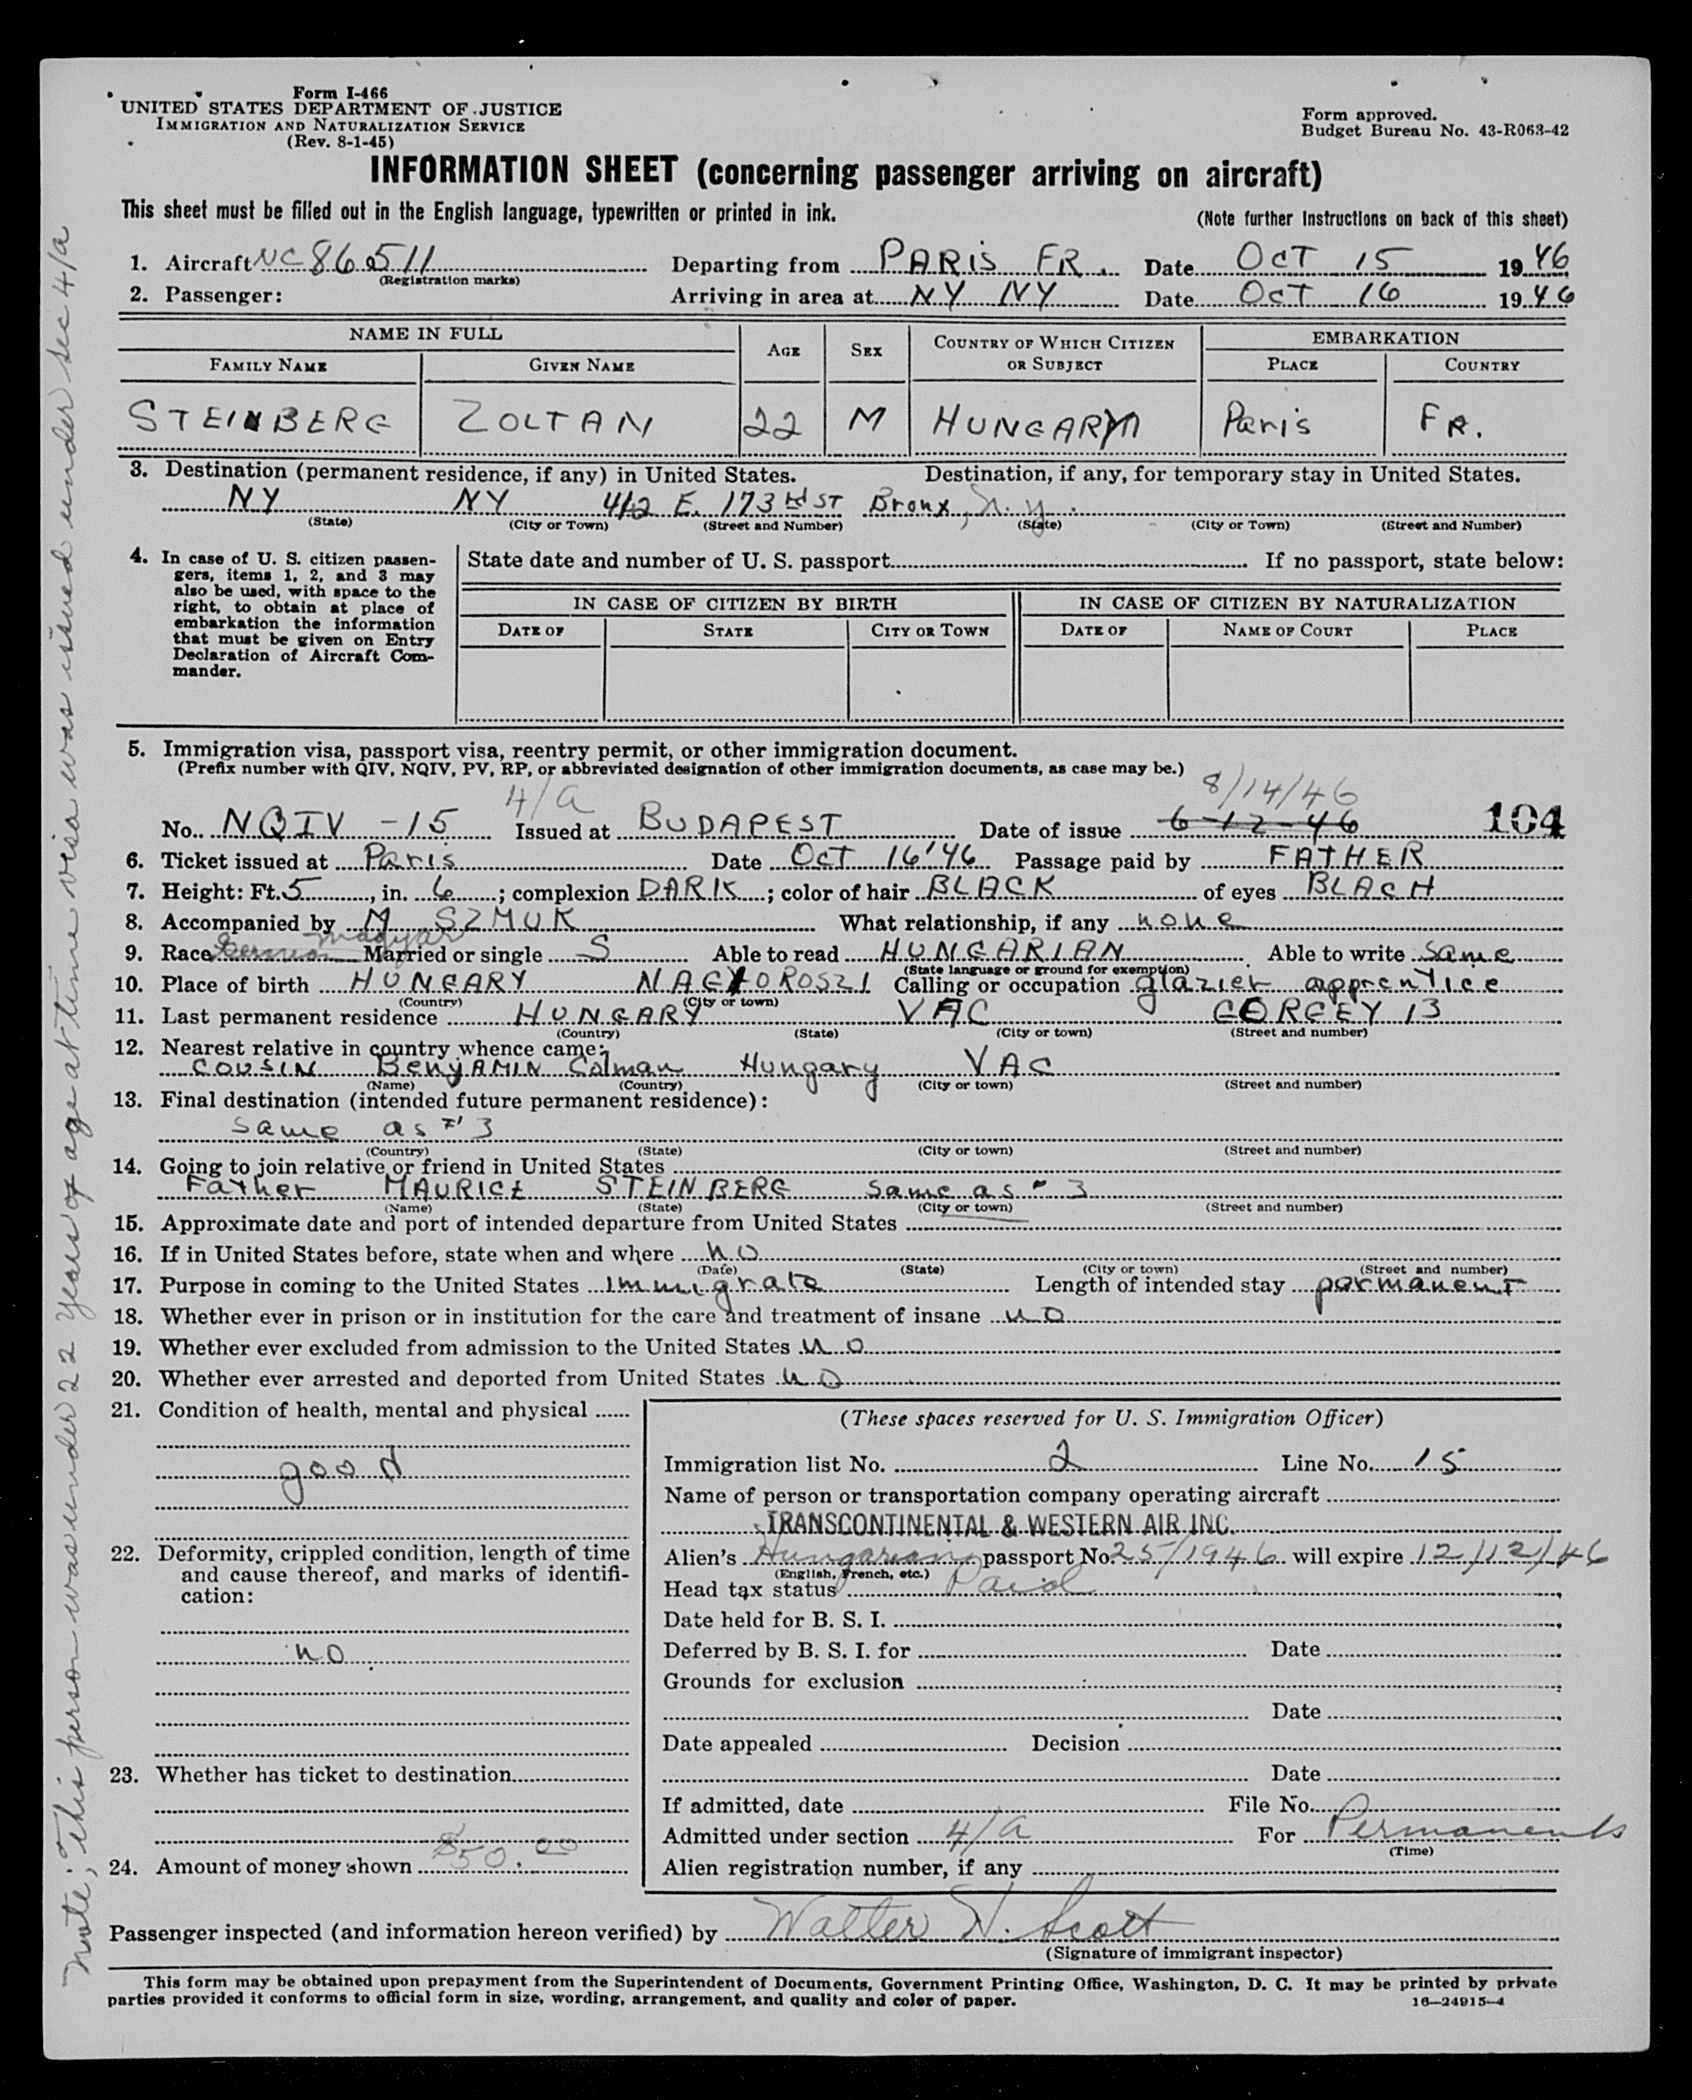 Form I-466
UNITED STATES DEPARTMENT OF JUSTICE
IMMIGRATION AND NATURALIZATION SERVICE
(Rev. 8-1-45)
Form approved.
Budget Bureau No. 43-R063-42
INFORMATION SHEET (concerning passenger arriving on aircraft)
This sheet must be filled out in the English language, typewritten or printed in ink.
(Note further instructions on back of this sheet)
1. Aircraft NC 86511 Departing from PARIS FR. Date OCT 15 1946
(Registration marks)
2. Passenger: Arriving in area at NY NY Date OCT 16 1946
NAME IN FULL AGE SEX COUNTRY OF WHICH CITIZEN OR SUBJECT EMBARKATION
FAMILY NAME GIVEN NAME PLACE COUNTRY
STEINBERG ZOLTAN 22 M HUNGARY Paris FR.
3. Destination (permanent residence, if any) in United States. Destination, if any, for temporary stay in United States.
NY NY 412 E. 173rd ST Bronx, N.Y.
(State) (City or Town) (Street and Number) (State) (City or Town) (Street and Number)
4. In case of U. S. citizen passen-
gers, items 1, 2, and 3 may
also be used, with space to the
right, to obtain at place of
embarkation the information
that must be given on Entry
Declaration of Aircraft Com-
mander.
State date and number of U. S. passport If no passport, state below:
IN CASE OF CITIZEN BY BIRTH IN CASE OF CITIZEN BY NATURALIZATION
DATE OF STATE CITY OR TOWN DATE OF NAME OF COURT PLACE
5. Immigration visa, passport visa, reentry permit, or other immigration document.
(Prefix number with QIV, NQIV, PV, RP, or abbreviated designation of other immigration documents, as case may be.)
4/a 8/14/46
No. NQIV -15 Issued at BUDAPEST Date of issue 6-12-46 104
6. Ticket issued at Paris Date OCT 16'46 Passage paid by FATHER
7. Height: Ft. 5, in. 6; complexion DARK; color of hair BLACK of eyes BLACH
8. Accompanied by M SZMUK What relationship, if any none
magyar
9. Race German Married or single S Able to read HUNGARIAN Able to write same
(State language or ground for exemption)
10. Place of birth HUNGARY NAGYOROSZI Calling or occupation glazier apprentice
(Country) (City or town)
11. Last permanent residence HUNGARY VAC GORGEY 13
(Country) (State) (City or town) (Street and number)
12. Nearest relative in country whence came:
COUSIN BENYAMIN Colman Hungary VAC
(Name) (Country) (City or town) (Street and number)
13. Final destination (intended future permanent residence):
same as # 3
(Country) (State) (City or town) (Street and number)
14. Going to join relative or friend in United States
Father MAURICE STEINBERG same as # 3
(Name) (State) (City or town) (Street and number)
15. Approximate date and port of intended departure from United States
16. If in United States before, state when and where no
(Date) (State) (City or town) (Street and number)
17. Purpose in coming to the United States immigrate Length of intended stay permanent
18. Whether ever in prison or in institution for the care and treatment of insane no
19. Whether ever excluded from admission to the United States no
20. Whether ever arrested and deported from United States no
21. Condition of health, mental and physical
good
22. Deformity, crippled condition, length of time
and cause thereof, and marks of identifi-
cation:
no
23. Whether has ticket to destination
24. Amount of money shown $50.00
(These spaces reserved for U. S. Immigration Officer)
Immigration list No. 2 Line No. 15
Name of person or transportation company operating aircraft
TRANSCONTINENTAL & WESTERN AIR INC.
Alien's Hungarian passport No. 25/1946 will expire 12/12/46
(English, French, etc.)
Head tax status Paid
Date held for B. S. I.
Deferred by B. S. I. for Date
Grounds for exclusion
Date
Date appealed Decision
Date
If admitted, date File No.
Admitted under section 4/a For Permanent
(Time)
Alien registration number, if any
Passenger inspected (and information hereon verified) by Walter N. Scott
(Signature of immigrant inspector)
This form may be obtained upon prepayment from the Superintendent of Documents, Government Printing Office, Washington, D. C. It may be printed by private
parties provided it conforms to official form in size, wording, arrangement, and quality and color of paper.
16—24915-4
Note; This person was under 22 years of age at time visa was issued under sec 4/a